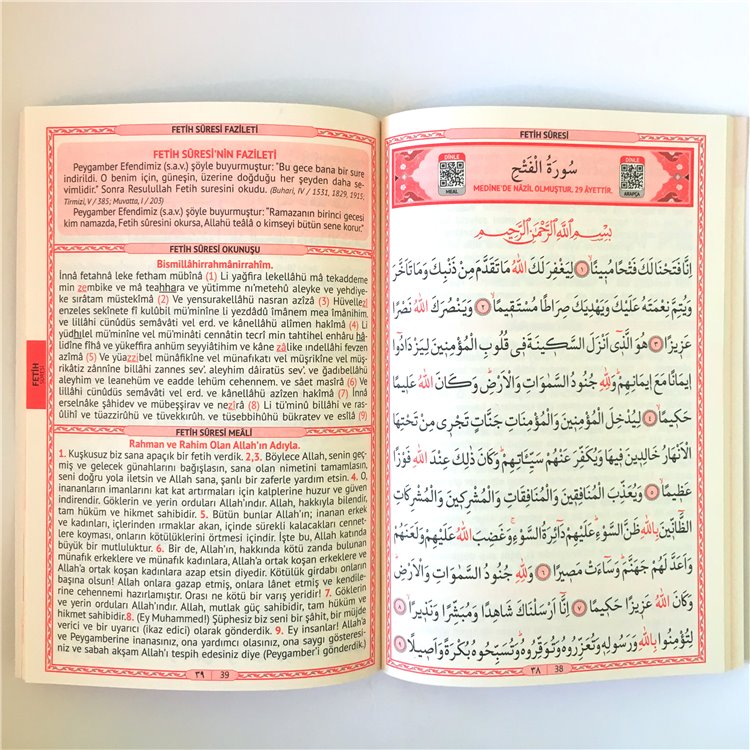 FETİH SÛRESİ FAZİLETİ
FETİH SÛRESİ'NİN FAZİLETİ
Peygamber Efendimiz (s.a.v.) şöyle buyurmuştur: "Bu gece bana bir sure
indirildi. O benim için, güneşin, üzerine doğduğu her şeyden daha se-
vimlidir." Sonra Resulullah Fetih suresini okudu. (Buhari, IV / 1531, 1829, 1915;
Tirmizi, V / 385; Muvatta, I / 203)
Peygamber Efendimiz (s.a.v.) şöyle buyurmuştur: "Ramazanın birinci gecesi
kim namazda, Fetih sûresini okursa, Allahü teâlâ o kimseyi bütün sene korur."
FETİH SÛRESİ OKUNUŞU
Bismillâhirrahmânirrahîm.
İnnâ fetahnâ leke fetham mübînâ (1) Li yağfira lekellâhü mâ tekaddeme
min zembike ve mâ teahhara ve yütimme nı'metehû aleyke ve yehdiye-
ke sırâtam müstekîmâ (2) Ve yensurakellâhü nasran azîzâ (3) Hüvellezî
enzeles sekînete fî kulûbil mü'minîne li yezdâdû îmânem mea îmânihim,
ve lillâhi cünûdüs semâvâti vel erd. ve kânellâhü alîmen hakîmâ (4) Li
yüdhilel mü'minîne vel mü'minâti cennâtin tecrî min tahtihel enhâru hâ-
lidîne fîhâ ve yükeffira anhüm seyyiâtihim ve kâne zâlike ındellâhi fevzen
azîmâ (5) Ve yüazzibel münâfikîne vel münafıkati vel müşrikîne vel müş-
rikâtiz zânnîne billâhi zannes sev'. aleyhim dâiratüs sev'. ve ğadıbellâhü
aleyhim ve leanehüm ve eadde lehüm cehennem. ve sâet masîrâ (6) Ve
lillâhi cünûdüs semâvâti vel erd. ve kânellâhü azîzen hakîmâ (7) İnnâ
erselnâke şâhidev ve mübeşşirav ve nezîrâ (8) Li tü'minû billâhi ve ra-
sûlihî ve tüazzirûhü ve tüvekkırûh. ve tüsebbihûhü bükratev ve esîlâ (9)
FETİH SÛRESİ MEÂLİ
Rahman ve Rahim Olan Allah'ın Adıyla.
1. Kuşkusuz biz sana apaçık bir fetih verdik. 2,3. Böylece Allah, senin geç-
miş ve gelecek günahlarını bağışlasın, sana olan nimetini tamamlasın,
seni doğru yola iletsin ve Allah sana, şanlı bir zaferle yardım etsin. 4. O,
inananların imanlarını kat kat artırmaları için kalplerine huzur ve güven
indirendir. Göklerin ve yerin orduları Allah'ındır. Allah, hakkıyla bilendir,
tam hüküm ve hikmet sahibidir. 5. Bütün bunlar Allah'ın; inanan erkek
ve kadınları, içlerinden ırmaklar akan, içinde sürekli kalacakları cennet-
lere koyması, onların kötülüklerini örtmesi içindir. İşte bu, Allah katında
büyük bir mutluluktur. 6. Bir de, Allah'ın, hakkında kötü zanda bulunan
münafık erkeklere ve münafık kadınlara, Allah'a ortak koşan erkeklere ve
Allah'a ortak koşan kadınlara azap etsin diyedir. Kötülük girdabı onların
başına olsun! Allah onlara gazap etmiş, onlara lânet etmiş ve kendile-
rine cehennemi hazırlamıştır. Orası ne kötü bir varış yeridir! 7. Göklerin
ve yerin orduları Allah'ındır. Allah, mutlak güç sahibidir, tam hüküm ve
hikmet sahibidir.8. (Ey Muhammed!) Şüphesiz biz seni bir şâhit, bir müjde
verici ve bir uyarıcı (ikaz edici) olarak gönderdik. 9. Ey insanlar! Allah'a
ve Peygamberine inanasınız, ona yardımcı olasınız, ona saygı gösteresi-
niz ve sabah akşam Allah'ı tespih edesiniz diye (Peygamber'i gönderdik.)
FETİH
SÛRESİ
٣٩ 39
FETİH SÛRESİ
DİNLE
MEAL
سُورَةُ الْفَتْحِ
MEDİNE'DE NÂZİL OLMUŞTUR. 29 ÂYETTİR.
DİNLE
ARAPÇA
بِسْمِ اللهِ الرَّحْمٰنِ الرَّحِيمِ
اِنَّا فَتَحْنَا لَكَ فَتْحًا مُبِينًاۙ ﴿١﴾ لِيَغْفِرَ لَكَ اللهُ مَا تَقَدَّمَ مِنْ ذَنْبِكَ وَمَا تَاَخَّرَ
وَيُتِمَّ نِعْمَتَهُ عَلَيْكَ وَيَهْدِيَكَ صِرَاطًا مُسْتَقِيمًاۙ ﴿٢﴾ وَيَنْصُرَكَ اللهُ نَصْرًا
عَزِيزًا ﴿٣﴾ هُوَ الَّذِى اَنْزَلَ السَّكِينَةَ فِى قُلُوبِ الْمُؤْمِنِينَ لِيَزْدَادُوا
اِيمَانًا مَعَ اِيمَانِهِمْ وَلِلهِ جُنُودُ السَّمٰوَاتِ وَالْاَرْضِ وَكَانَ اللهُ عَلِيمًا
حَكِيمًاۙ ﴿٤﴾ لِيُدْخِلَ الْمُؤْمِنِينَ وَالْمُؤْمِنَاتِ جَنَّاتٍ تَجْرِى مِنْ تَحْتِهَا
الْاَنْهَارُ خَالِدِينَ فِيهَا وَيُكَفِّرَ عَنْهُمْ سَيِّـَٔاتِهِمْ وَكَانَ ذٰلِكَ عِنْدَ اللهِ فَوْزًا
عَظِيمًاۙ ﴿٥﴾ وَيُعَذِّبَ الْمُنَافِقِينَ وَالْمُنَافِقَاتِ وَالْمُشْرِكِينَ وَالْمُشْرِكَاتِ
الظَّانِّينَ بِاللهِ ظَنَّ السَّوْءِ عَلَيْهِمْ دَائِرَةُ السَّوْءِ وَغَضِبَ اللهُ عَلَيْهِمْ وَلَعَنَهُمْ
وَاَعَدَّ لَهُمْ جَهَنَّمَ وَسَاءَتْ مَصِيرًا ﴿٦﴾ وَلِلهِ جُنُودُ السَّمٰوَاتِ وَالْاَرْضِ
وَكَانَ اللهُ عَزِيزًا حَكِيمًا ﴿٧﴾ اِنَّا اَرْسَلْنَاكَ شَاهِدًا وَمُبَشِّرًا وَنَذِيرًاۙ ﴿٨﴾
لِتُؤْمِنُوا بِاللهِ وَرَسُولِهِ وَتُعَزِّرُوهُ وَتُوَقِّرُوهُ وَتُسَبِّحُوهُ بُكْرَةً وَاَصِيلًا ﴿٩﴾
٣٨ 38